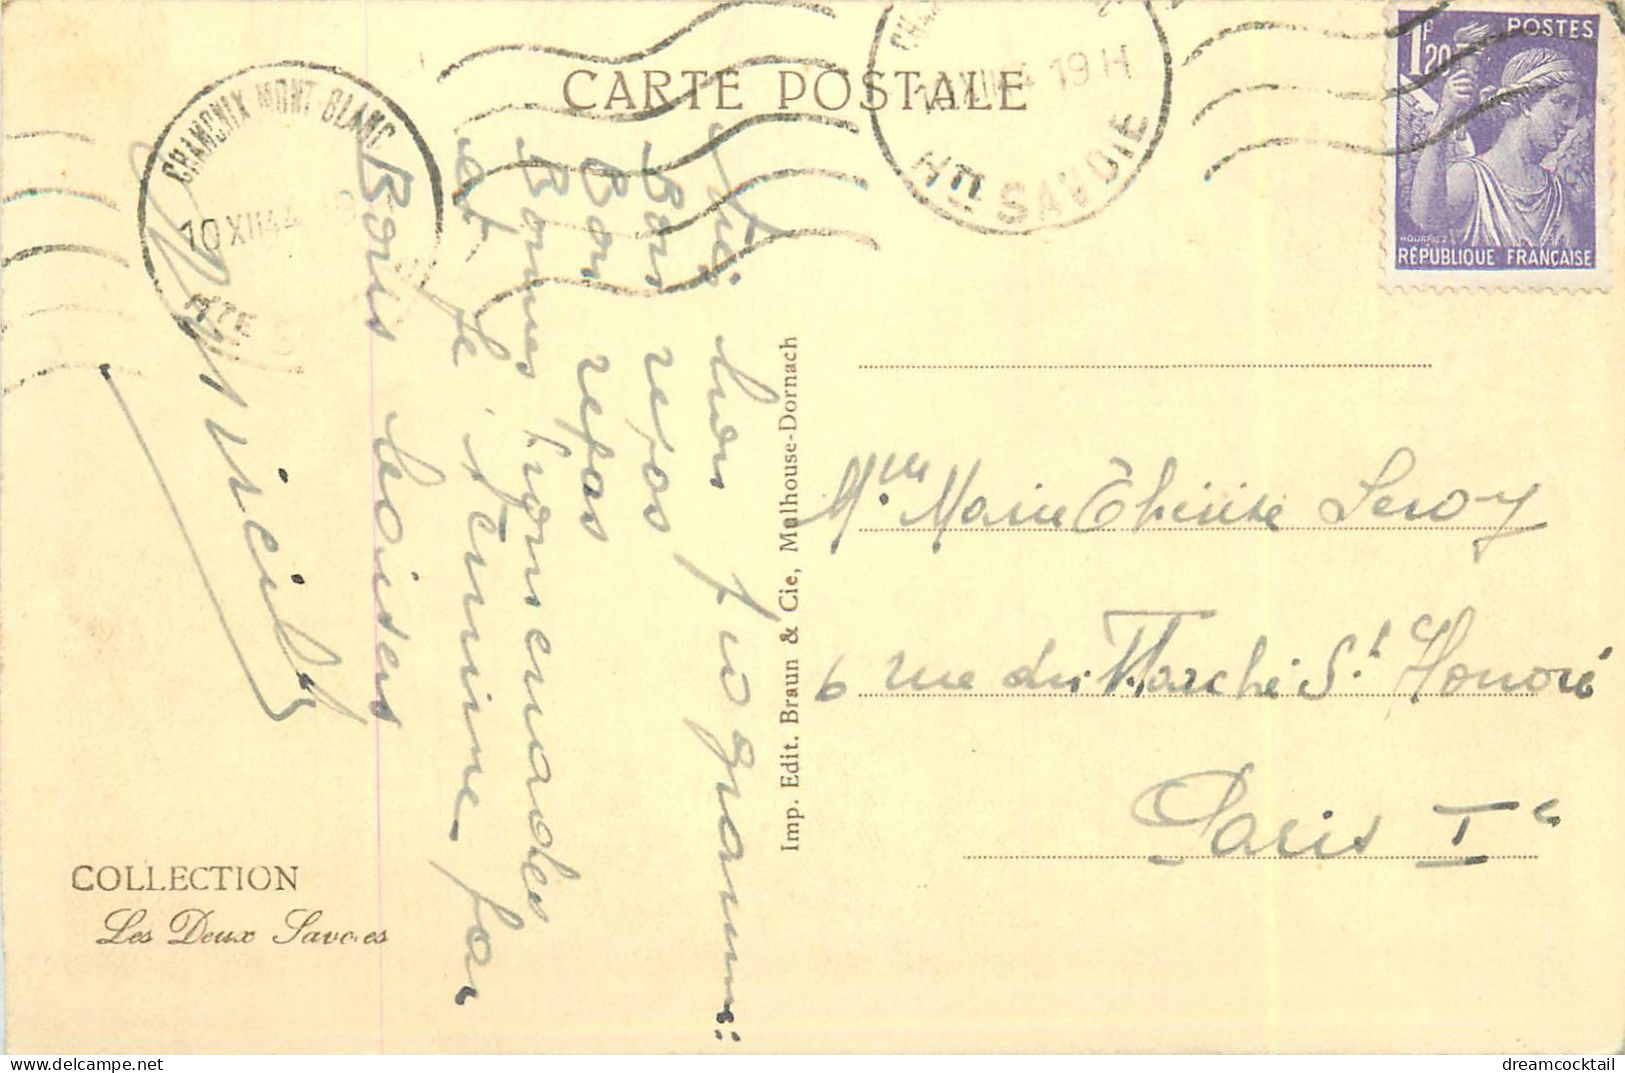 CARTE POSTALE
CHAMONIX MONT-BLANC
10 XII 44
Hte
19 H
Hte SAVOIE
POSTES
1F
20
RÉPUBLIQUE FRANÇAISE
bon programme:
Bon repos
Bon repas
Bonnes promenades
et je termine par
Bons baisers
Imp. Edit. Braun & Cie, Mulhouse-Dornach
Mlle Marie Thérèse Leroy
6 rue du Marché St Honoré
Paris Ie
COLLECTION
Les Deux Savoies
dreamcocktail